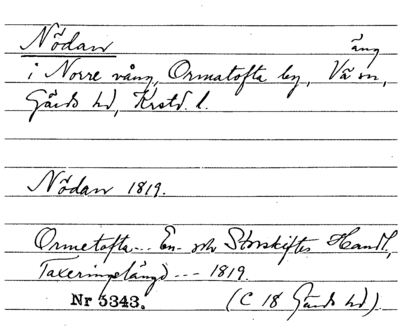 Nödan äng
i Norre vång, Ormatofta by, Vä sn,
Gärds hd, Krstd. l.
Nödan 1819.
Ormetofta--- En- och Storskiftes Handl,
Taxeringslängd --- 1819.
Nr 5343. (C 18 Gärds hd).